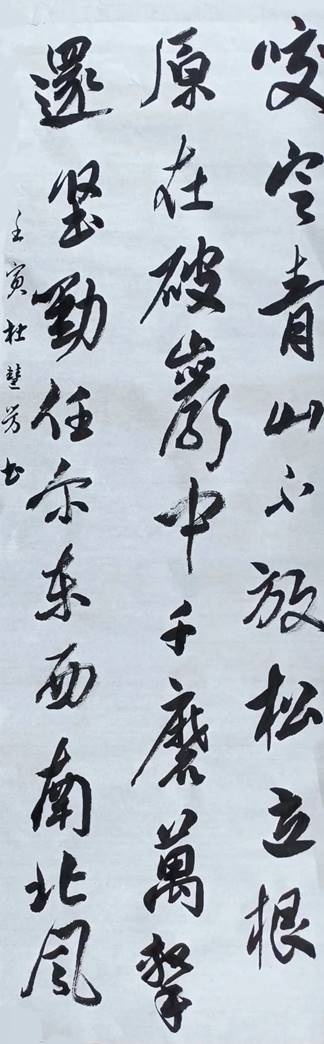 咬定青山不放松立根
原在破巖中千磨萬擊
還堅勁任尔东西南北风
壬寅杜慧芳书